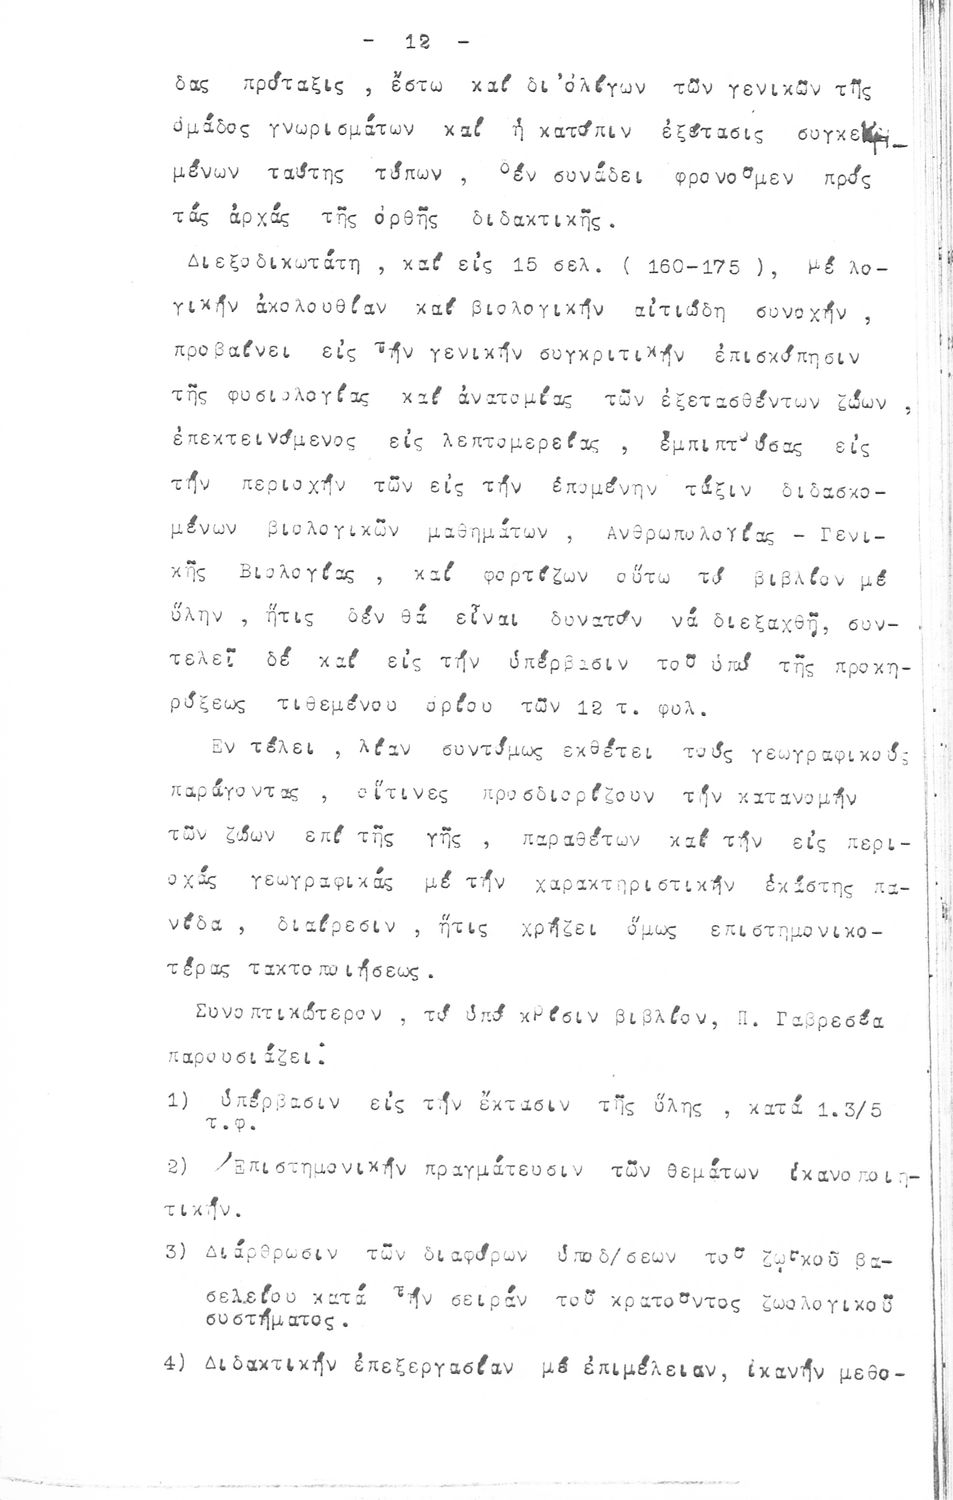 - 12 -
δας πρόταξις , ἔστω καί δι'ὀλίγων τῶν γενικῶν τῆς
ὁμάδος γνωρισμάτων καί ἡ κατόπιν ἐξέτασις συγκεκρι_
μένων ταύτης τύπων , δέν συνάδει φρονοῦμεν πρός
τάς ἀρχάς τῆς ὀρθῆς διδακτικῆς.
Διεξοδικωτάτη , καί εἰς 15 σελ. ( 160-175 ), μέ λο-
γικήν ἀκολουθίαν καί βιολογικήν αἰτιώδη συνοχήν ,
προβαίνει εἰς τήν γενικήν συγκριτικήν ἐπισκόπησιν
τῆς φυσιολογίας καί ἀνατομίας τῶν ἐξετασθέντων ζώων ,
ἐπεκτεινόμενος εἰς λεπτομερείας , ἐμπιπτούσας εἰς
τήν περιοχήν τῶν εἰς τήν ἑπομένην τάξιν διδασκο-
μένων βιολογικῶν μαθημάτων , Ανθρωπολογίας - Γενι-
κῆς Βιολογίας , καί φορτίζων οὕτω τό βιβλίον μέ
ὕλην , ἥτις δέν θά εἶναι δυνατόν νά διεξαχθῇ, συν-
τελεῖ δέ καί εἰς τήν ὑπέρβασιν τοῦ ὑπό τῆς προκη-
ρύξεως τιθεμένου ορίου τῶν 12 τ. φυλ.
Εν τέλει , λίαν συντόμως εκθέτει τούς γεωγραφικούς
παράγοντας , οἵτινες προσδιορίζουν τήν κατανομήν
τῶν ζώων επί τῆς γῆς , παραθέτων καί τήν εἰς περι-
οχάς γεωγραφικάς μέ τήν χαρακτηριστικήν ἑκάστης πα-
νίδα , διαίρεσιν , ἥτις χρῄζει ὅμως επιστημονικο-
τέρας τακτοποιήσεως.
Συνοπτικώτερον , τό ὑπό κρίσιν βιβλίον, Π. Γαβρεσέα
παρουσιάζει:
1) ὑπέρβασιν εἰς τήν ἔκτασιν τῆς ὕλης , κατά 1.3/5
τ.φ.
2) /Επιστημονικήν πραγμάτευσιν τῶν θεμάτων ἱκανοποιη-
τικήν.
3) Διάρθρωσιν τῶν διαφόρων ὑποδ/σεων τοῦ ζῳικοῦ βα-
σελείου κατά τήν σειράν τοῦ κρατοῦντος ζωολογικοῦ
συστήματος.
4) Διδακτικήν ἐπεξεργασίαν μέ ἐπιμέλειαν, ἱκανήν μεθο-